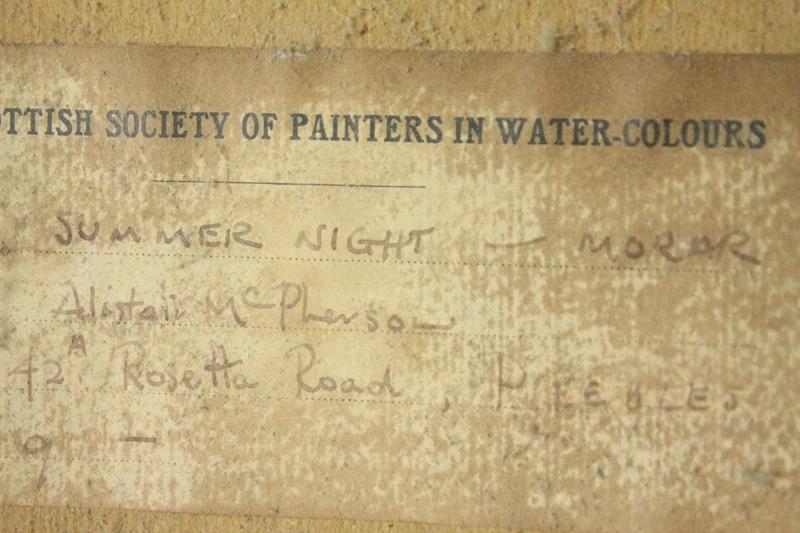 OTTISH SOCIETY OF PAINTERS IN WATER-COLOURS
SUMMER NIGHT — MORAR
Alistair McPherson
42A Rosetta Road, PEEBLES
9 —